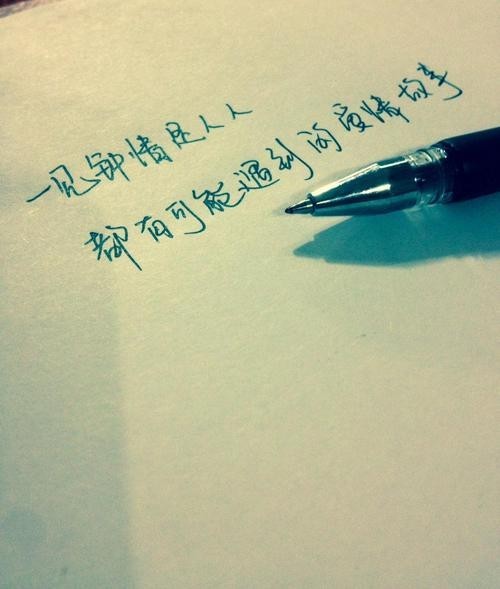 一见钟情是人人
都有可能遇到的爱情故事